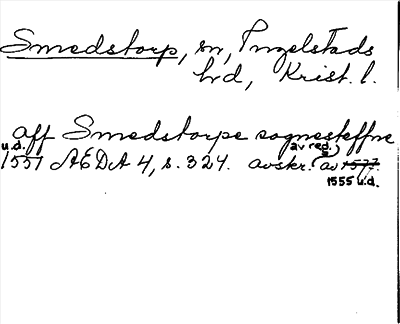 Smedstorp, sn, Ingelstads
hd, Krist. l.
aff Smedstorpe sognesteffne
u.d. av reg.
1551 AEDA 4, s. 324. avskr. (av 1577.
1555 u.d.